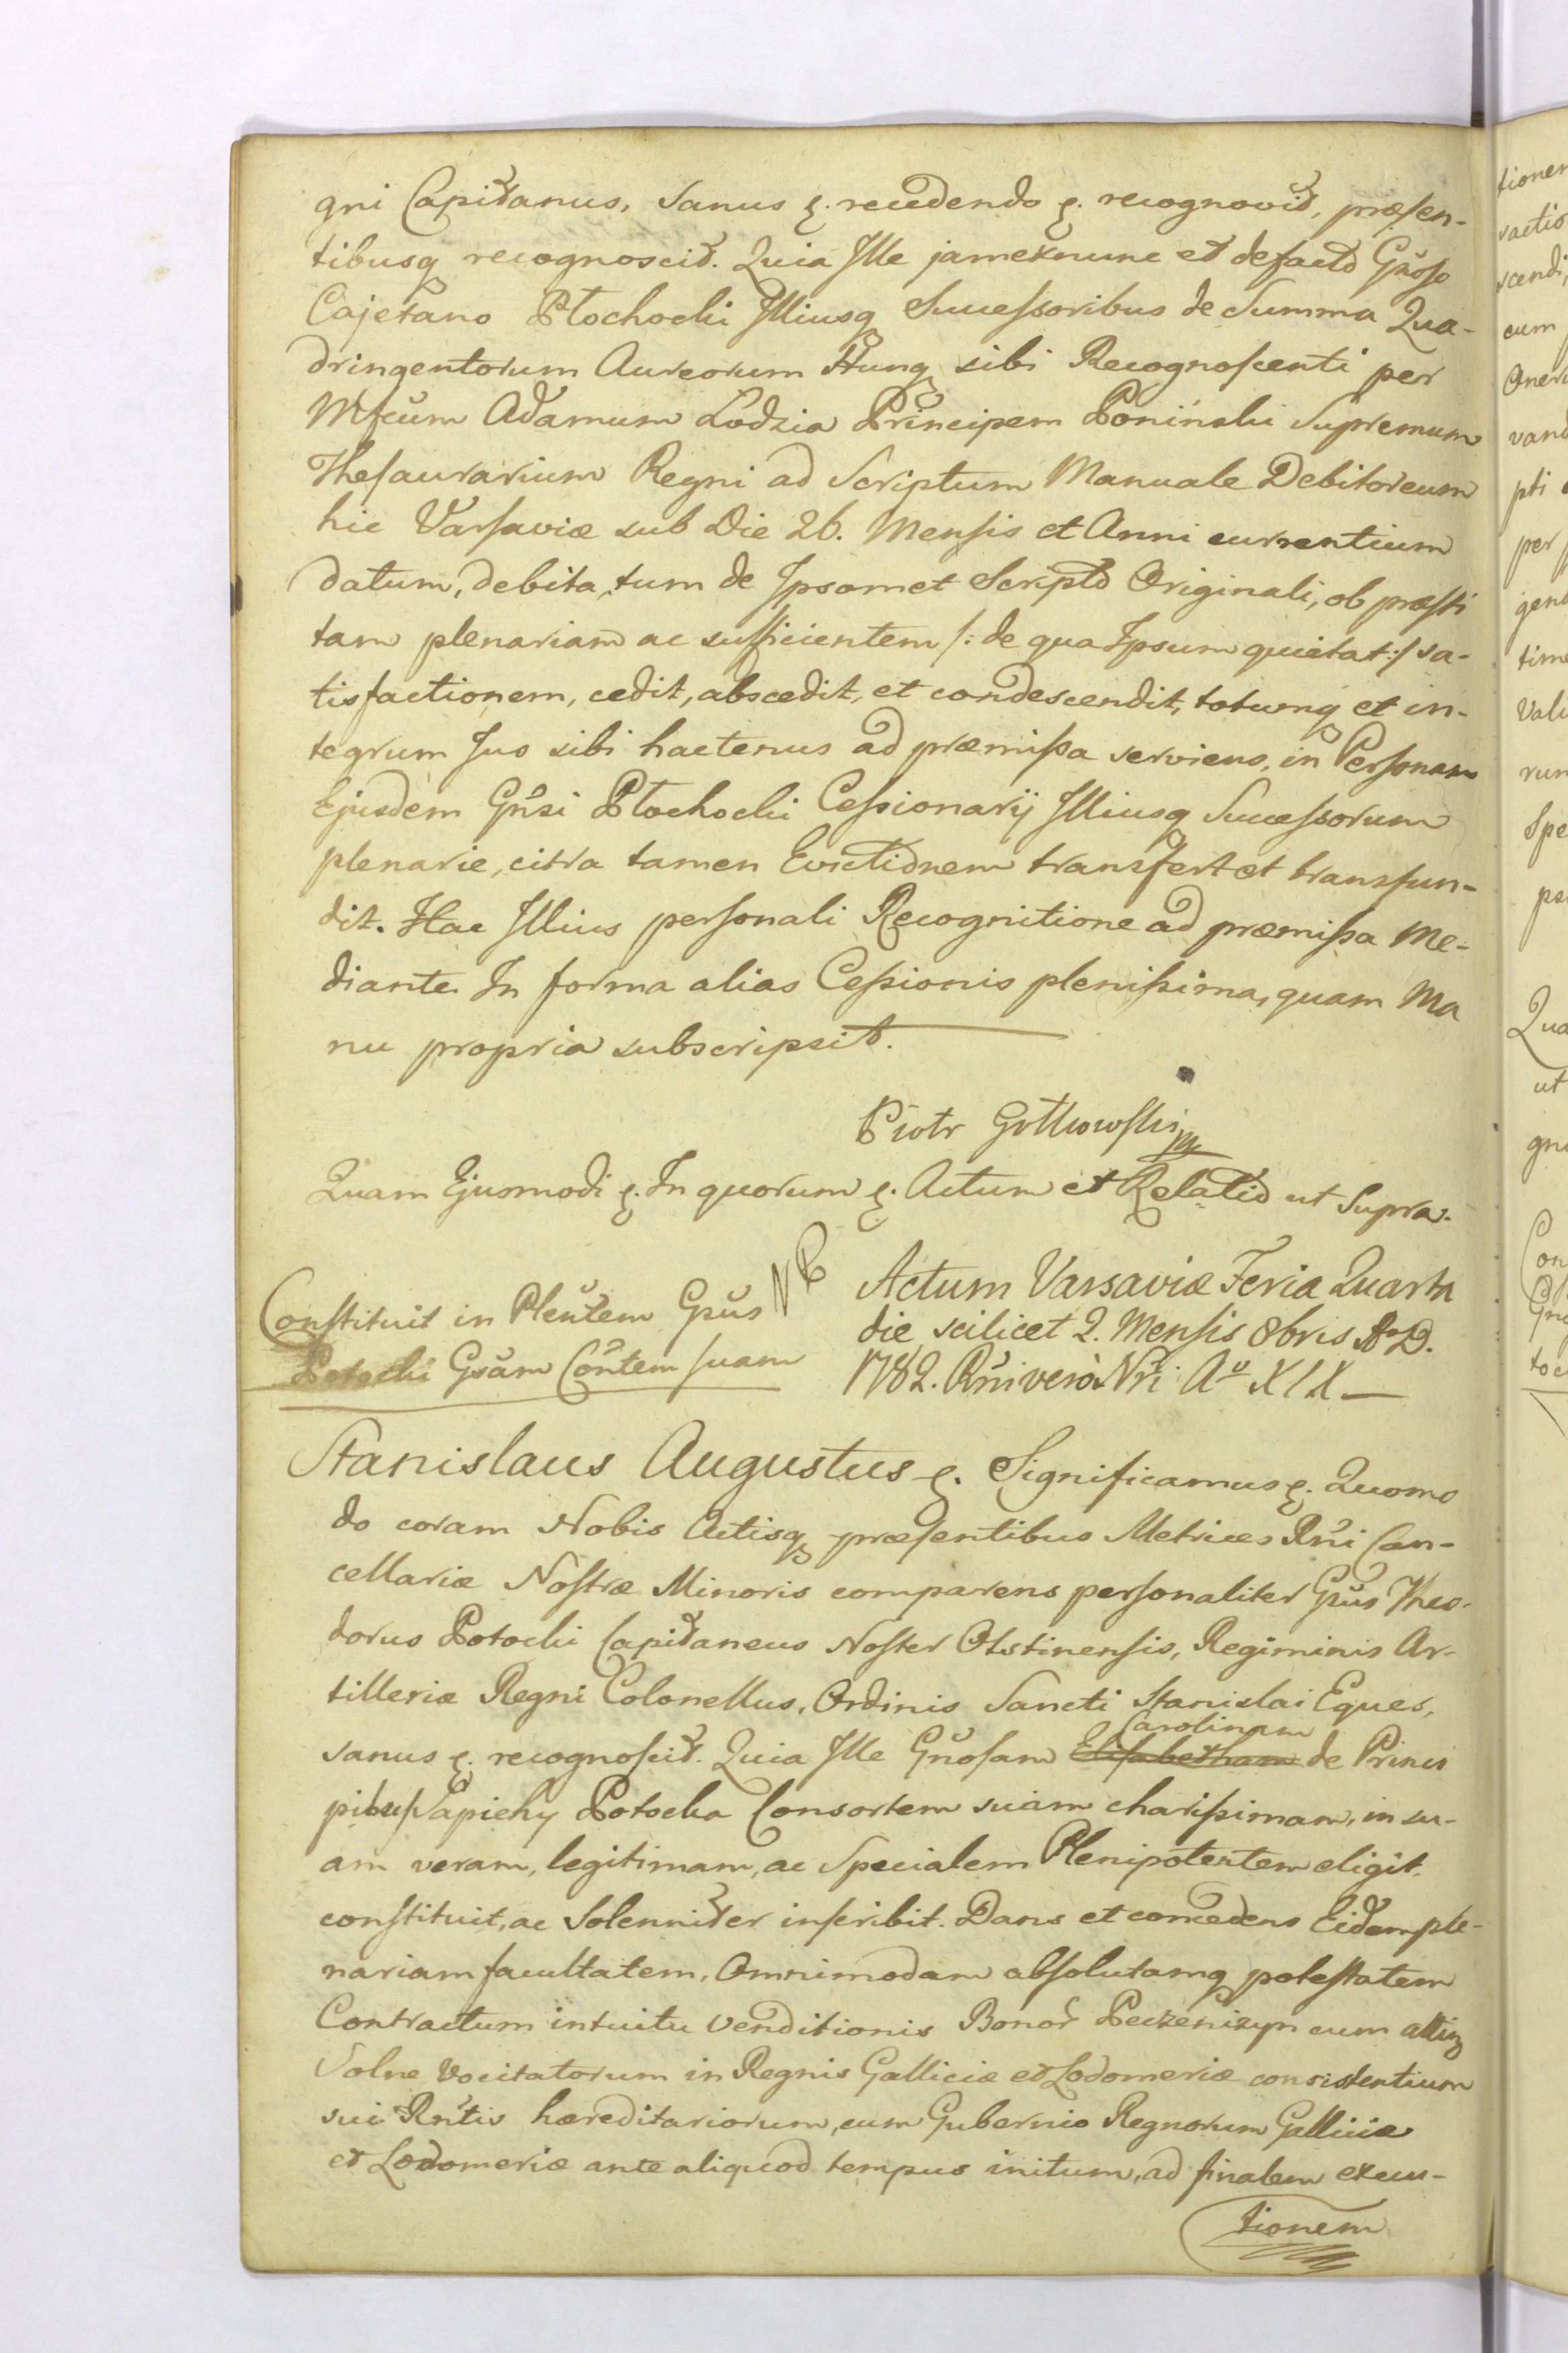 gni Capitanus, Sanus &. recedendo &. recognovit, præsen-
tibusq recognoscit. Quia Ille jamexnunc et defacto Gnoso
Cajetano Płochocki Illiusq Successoribus de Summa Qua-
dringentorum Aureorum Hung sibi Recognoscenti per
Mfcum Adamum Lodzia Principem Poninski Supremum
Thesaurarium Regni ad Scriptum Manuale Debitoreum
hic Varsaviæ sub Die 26. Mensis et Anni currentium
datum, debita, tum de Ipsomet Scripto Originali, ob præsti
tam plenariam ac sufficientem /: de qua Ipsum quietat :/ sa-
tisfactionem, cedit, abscedit, et condescendit, totumq et in-
tegrum Jus sibi hactenus ad præmissa serviens, in Personam
Ejusdem Gnsi Płochocki Cessionarij Illiusq Successorum
plenarie, citra tamen Evictionem transfert et transfun-
dit. Hac Illius personali Recognitione ad præmissa Me-
diante In forma alias Cessionis plenissima, quam Ma
nu propria subscripsit.
Piotr
Quam Ejusmodi &. In quorum &. Actum et Relatio ut Supra.
Constituit in Plentem Gsus
Potocki Gsam Contem suam
Actum Varsaviæ Feria Quarta
die scilicet 2. Mensis 8bris A D.
1782. Rni vero Nri Aº XIX
Stanislaus Augustus &. Significamus &. Quomo
do coram Nobis Actisq præsentibus Metrices Rni Can-
cellariæ Nostræ Minoris comparens personaliter Gsus Theo-
dorus Potocki Capitaneus Noster Olstinensis, Regiminis Ar-
tilleriæ Regni Colonellus, Ordinis Sancti Stanislai Eques,
sanus &. recognoscit. Quia Ille Gnosam Elisabetham Carolinam de Princi
pibus Sapiehy Potocka Consortem suam charissimam, in su-
am veram, legitimam, ac Specialem Plenipotentem eligit,
constituit, ac Solenniter inscribit. Dans et concedens Eidem ple-
nariam facultatem, Omnimodam absolutamq potestatem
Contractum intuitu Venditionis Bonor Peczenizyn cum attiny
Solne Vocitatorum in Regnis Galliciæ et Lodomeriæ consistentium
sui Rntis hæreditariorum, cum Gubernio Regnorum Galliciæ
et Lodomeriæ ante aliquod tempus initum, ad finalem execu-
tionem